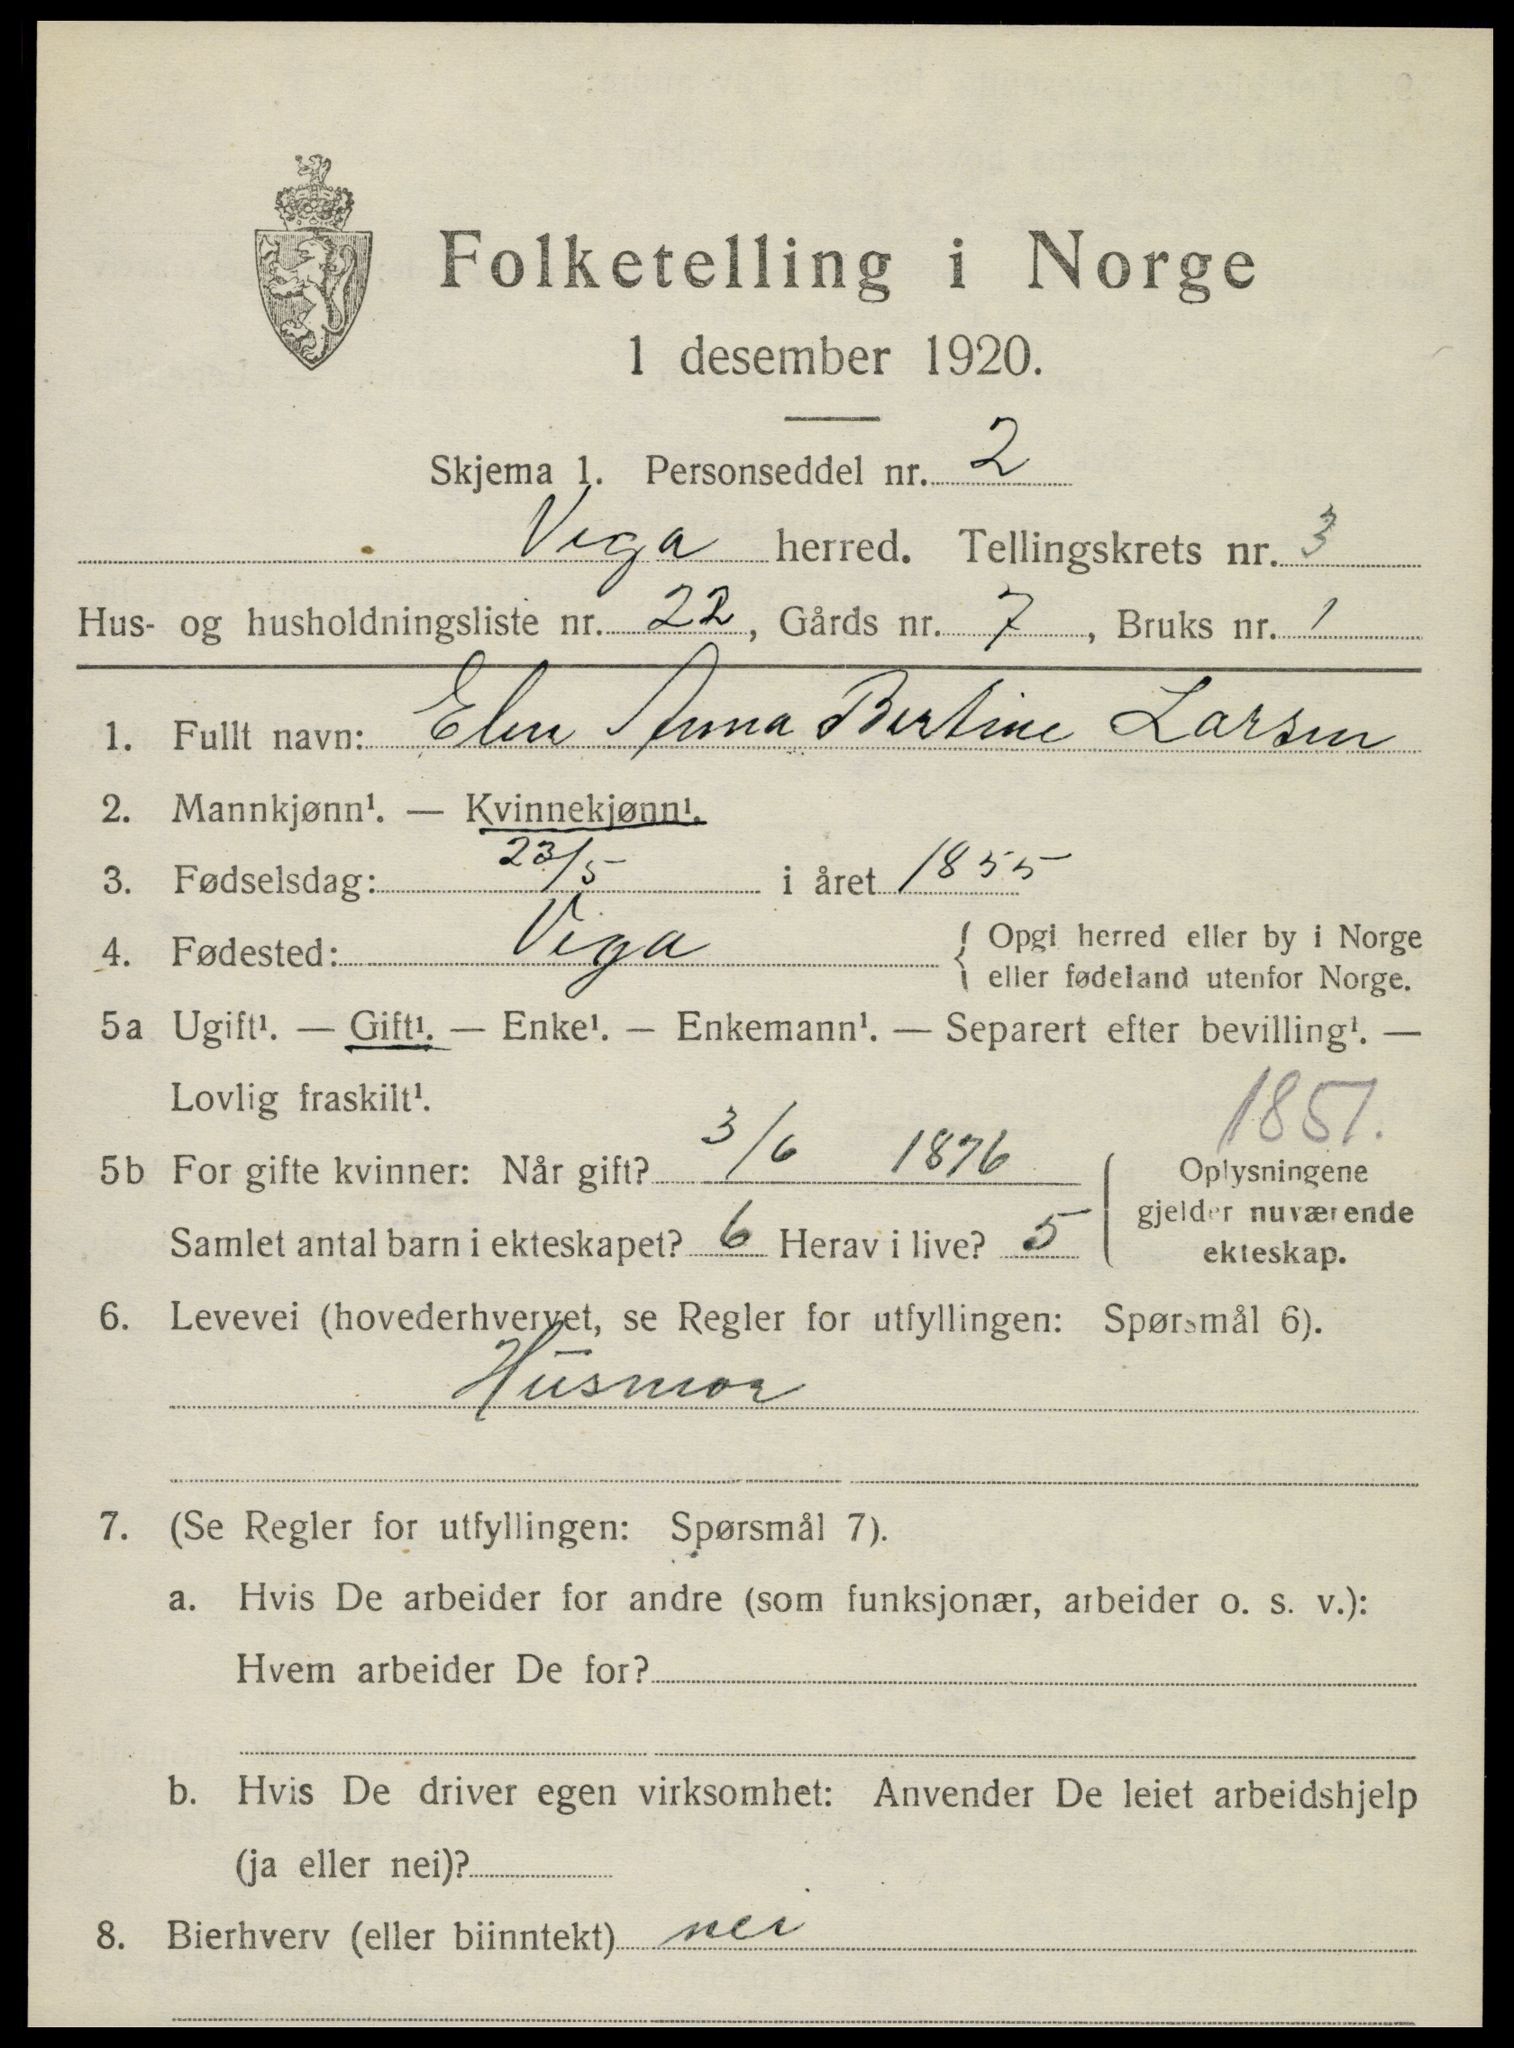 Folketelling i Norge
1 desember 1920.
Skjema 1. Personseddel nr. 2
Vega herred. Tellingskrets nr. 3
Hus- og husholdningsliste nr. 22, Gårds nr. 7, Bruks nr. 1
1. Fullt navn: Elen Anna Bertine Larsen
2. Mannkjønn¹. — Kvinnekjønn¹.
3. Fødselsdag: 23/5 i året 1855
4. Fødested: Vega { Opgi herred eller by i Norge
eller fødeland utenfor Norge.
5a Ugift¹. — Gift¹. — Enke¹. — Enkemann¹. — Separert efter bevilling¹. —
Lovlig fraskilt¹.
1851.
5b For gifte kvinner: Når gift? 3/6 1876
Samlet antal barn i ekteskapet? 6 Herav i live? 5
{ Oplysningene
gjelder nuværende
ekteskap.
6. Levevei (hovederhvervet, se Regler for utfyllingen: Spørsmål 6).
Husmor
7. (Se Regler for utfyllingen: Spørsmål 7).
a. Hvis De arbeider for andre (som funksjonær, arbeider o. s. v.):
Hvem arbeider De for?
b. Hvis De driver egen virksomhet: Anvender De leiet arbeidshjelp
(ja eller nei)?
8. Bierhverv (eller biinntekt) nei